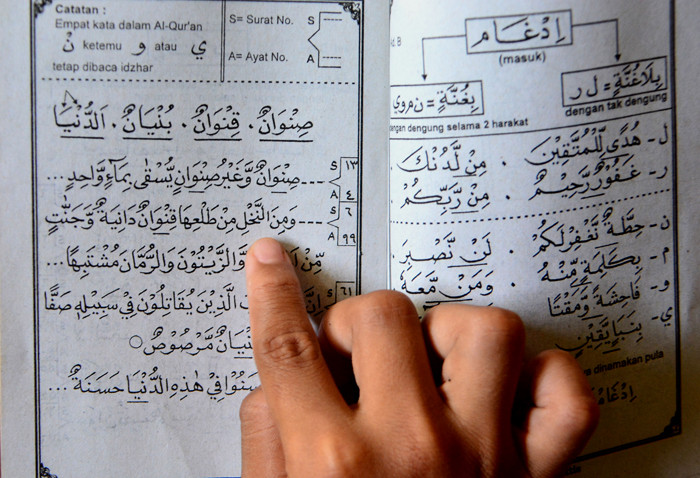 Catatan :
Empat kata dalam Al-Qur'an
نْ ketemu و atau ي
tetap dibaca idzhar
S= Surat No.
A= Ayat No.
S
A
صِنْوَانٌ . قِنْوَانٌ . بُنْيَانٌ . اَلدُّنْيَا
صِنْوَانٌ وَّغَيْرُ صِنْوَانٍ يُسْقٰى بِمَآءٍ وَّاحِدٍ ...
S ١٣
A ٤
وَمِنَ النَّخْلِ مِنْ طَلْعِهَا قِنْوَانٌ دَانِيَةٌ وَّجَنّٰتٍ
S ٦
A ٩٩
مِّنْ وَّالزَّيْتُوْنَ وَالرُّمَّانَ مُشْتَبِهًا ...
S ٦١
الَّذِيْنَ يُقَاتِلُوْنَ فِيْ سَبِيْلِهٖ صَفًّا
مَّرْصُوْصٌ
فِيْ هٰذِهِ الدُّنْيَا حَسَنَةٌ ...
اِدْغَام
(masuk)
بِلَاغُنَّةٍ = ل ر
dengan tak dengung
بِغُنَّةٍ = ن م و ي
dengan dengung selama 2 harakat
ل - هُدًى لِّلْمُتَّقِيْنَ . مِنْ لَّدُنْكَ
ر - غَفُوْرٌ رَّحِيْمٌ . مِنْ رَّبِّكُمْ
ن - حِطَّةٌ نَّغْفِرْلَكُمْ . لَنْ نَّصْبِرَ
م - بِكَلِمَةٍ مِّنْهُ . وَمَنْ مَّعَهٗ
و - فَاحِشَةً وَّمَقْتًا
ي - بِنَبَاٍ يَّقِيْنٍ
dinamakan pula